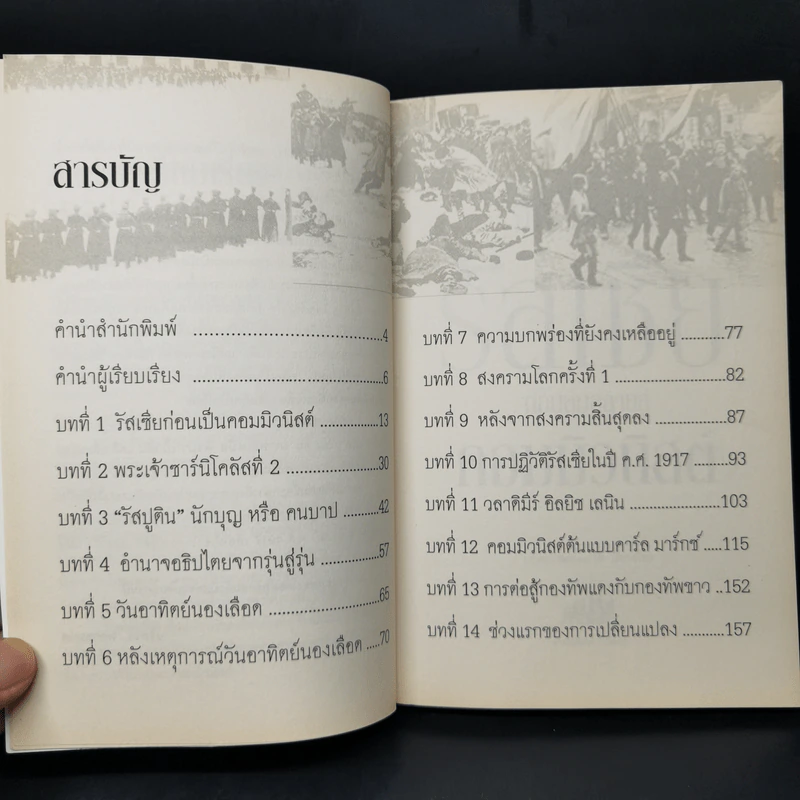 สารบัญ
คำนำสำนักพิมพ์ ..............................4
คำนำผู้เรียบเรียง ..............................6
บทที่ 1 รัสเซียก่อนเป็นคอมมิวนิสต์ ............13
บทที่ 2 พระเจ้าซาร์นิโคลัสที่ 2 .................30
บทที่ 3 “รัสปูติน” นักบุญ หรือ คนบาป ..........42
บทที่ 4 อำนาจอธิปไตยจากรุ่นสู่รุ่น ............57
บทที่ 5 วันอาทิตย์นองเลือด ....................65
บทที่ 6 หลังเหตุการณ์วันอาทิตย์นองเลือด .....70
บทที่ 7 ความบกพร่องที่ยังคงเหลืออยู่ ...........77
บทที่ 8 สงครามโลกครั้งที่ 1 ....................82
บทที่ 9 หลังจากสงครามสิ้นสุดลง ...............87
บทที่ 10 การปฏิวัติรัสเซียในปี ค.ศ. 1917 ........93
บทที่ 11 วลาดิมีร์ อิลยิช เลนิน .................103
บทที่ 12 คอมมิวนิสต์ต้นแบบคาร์ล มาร์กซ์ .....115
บทที่ 13 การต่อสู้กองทัพแดงกับกองทัพขาว ..152
บทที่ 14 ช่วงแรกของการเปลี่ยนแปลง ...........157